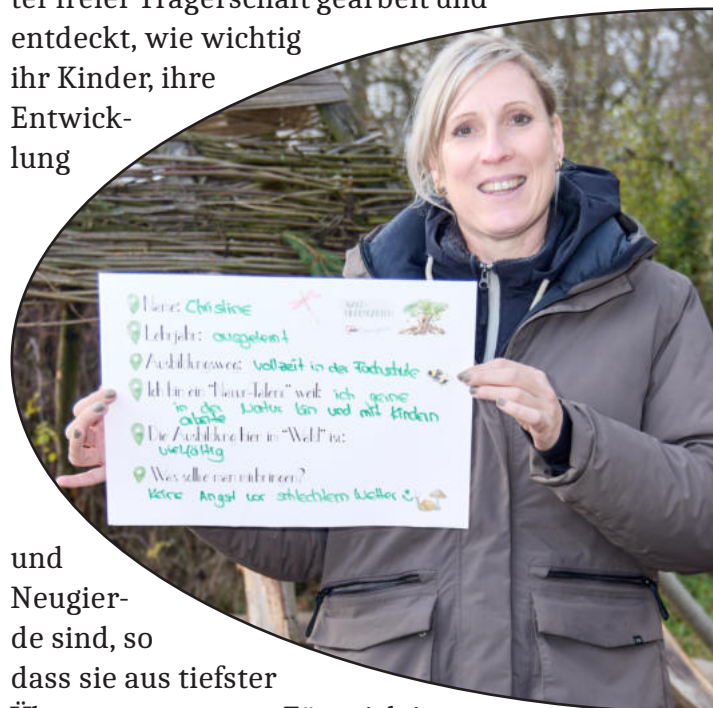 ter freier Trägerschaft gearbeit und
entdeckt, wie wichtig
ihr Kinder, ihre
Entwick-
lung
Name: Christine
Lehrjahr: ausgelernt
Ausbildungsweg: Vollzeit in der Fachschule
Ich bin ein "Natur-Talent" weil: ich gerne
in der Natur bin und mit Kindern
arbeite
Die Ausbildung hier im "Wald" ist:
vielfältig
Was sollte man mitbringen?
Keine Angst vor schlechtem Wetter
und
Neugier-
de sind, so
dass sie aus tiefster